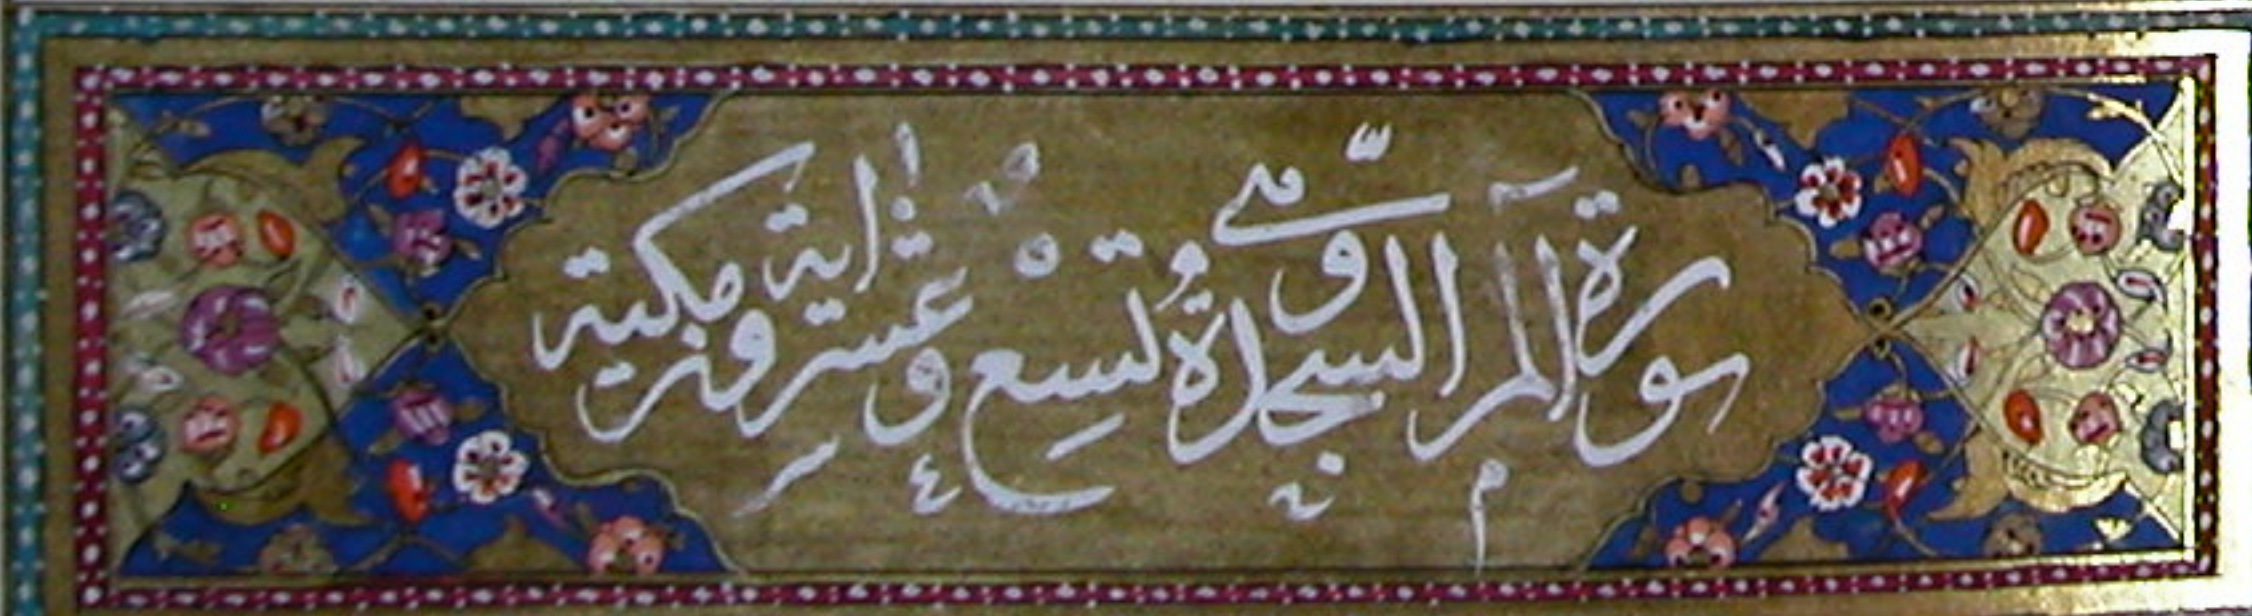 سورة الم السجدة وهى تسع وعشرون اية مكية